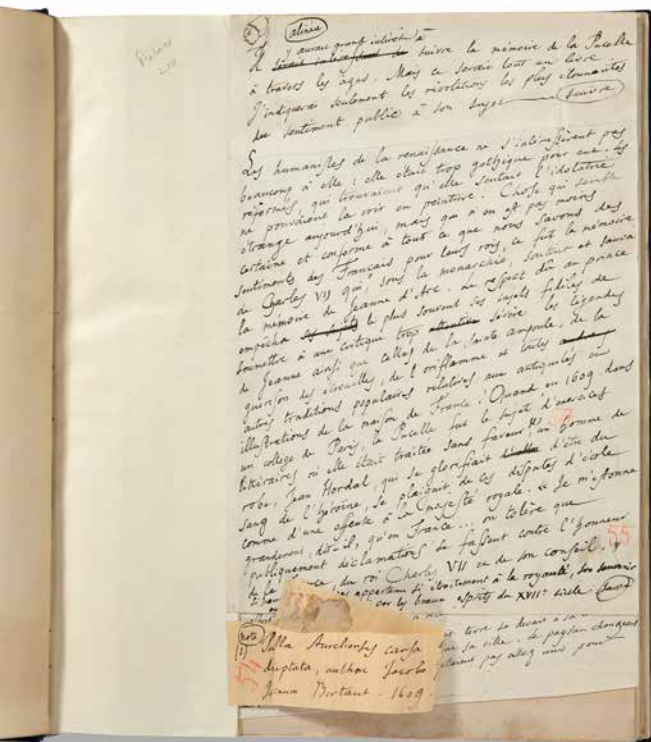 alinéa
y aurait grand intérêt à
Il serait intéressant de suivre la mémoire de la Pucelle
à travers les âges. Mais ce serait tout un livre
J'indiquerai seulement les révolutions les plus étonnantes
du sentiment public à son sujet (suivre)
Les humanistes de la renaissance ne s'intéressèrent pas
beaucoup à elle : elle était trop gothique pour eux. Les
réformés, qui trouvaient qu'elle sentait l'idolâtrie
ne pouvaient la voir en peinture. Chose qui semble
étrange aujourd'hui, mais qui n'en est pas moins
certaine et conforme à tout ce que nous savons des
sentiments des Français pour leurs rois, ce fut la mémoire
de Charles VII qui, sous la monarchie, soutint et sauva
la mémoire de Jeanne d'Arc. Le respect dû au prince
empêcha le plus souvent ses sujets fidèles de
soumettre à une critique trop sévère les légendes
de Jeanne ainsi que celles de la sainte ampoule, de la
guérison des écrouelles, de l'oriflamme et toutes
autres traditions populaires relatives aux antiquités ou
illustrations de la maison de France. Quand en 1609 dans
un collège de Paris, la Pucelle fut le sujet d'exercices
littéraires où elle était traitée sans faveur, un homme de
robe, Jean Hordal, qui se glorifiait d'être du
sang de l'héroïne, se plaignit de ces disputes d'école
comme d'une offense à la majesté royale. « Je m'étonne
grandement, dit-il, qu'en France... on tolère que
publiquement déclamations se fassent contre l'honneur
de la France, du roi Charles VII et de son conseil. »
55
appartenu si étroitement à la royauté, son souvenir
par les beaux esprits du XVIIe siècle (suivre)
terre se devait à sa
que sa ville. Le paysan
pas allez unis pour
note
(1)
54
Pulla Aureliensis causa
disputata, authore Jacobo
Bertaut. 1609.